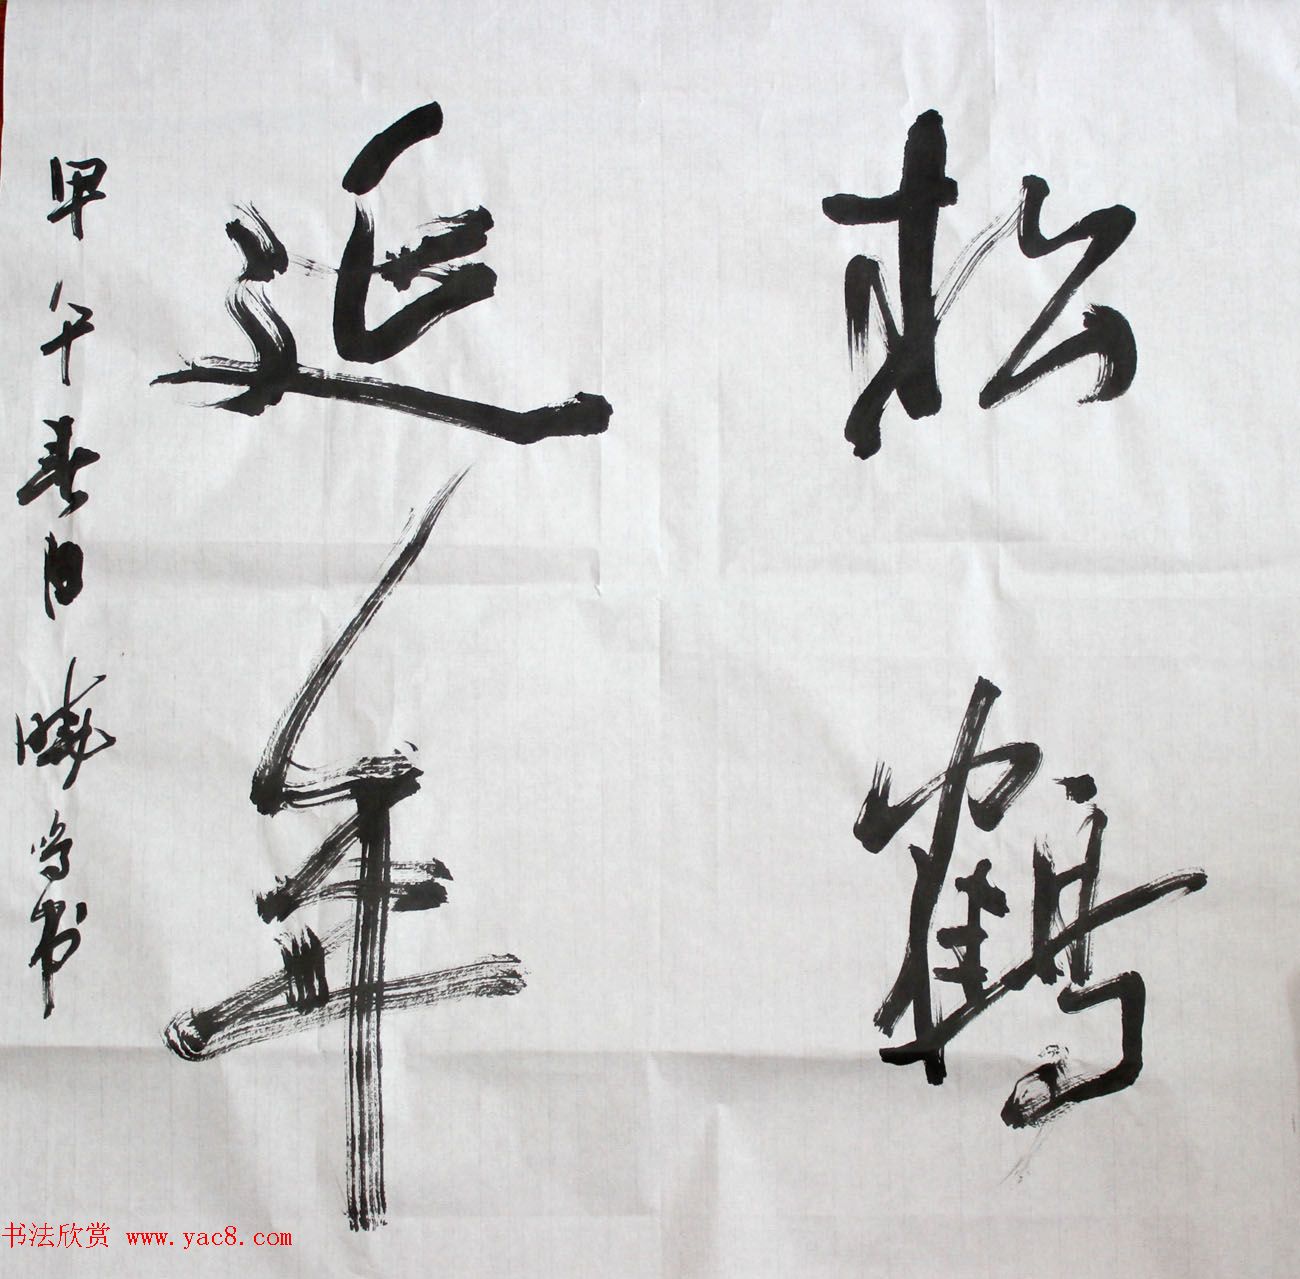 松鹤
延年
甲午春月晓鸣书
书法欣赏 www.yac8.com